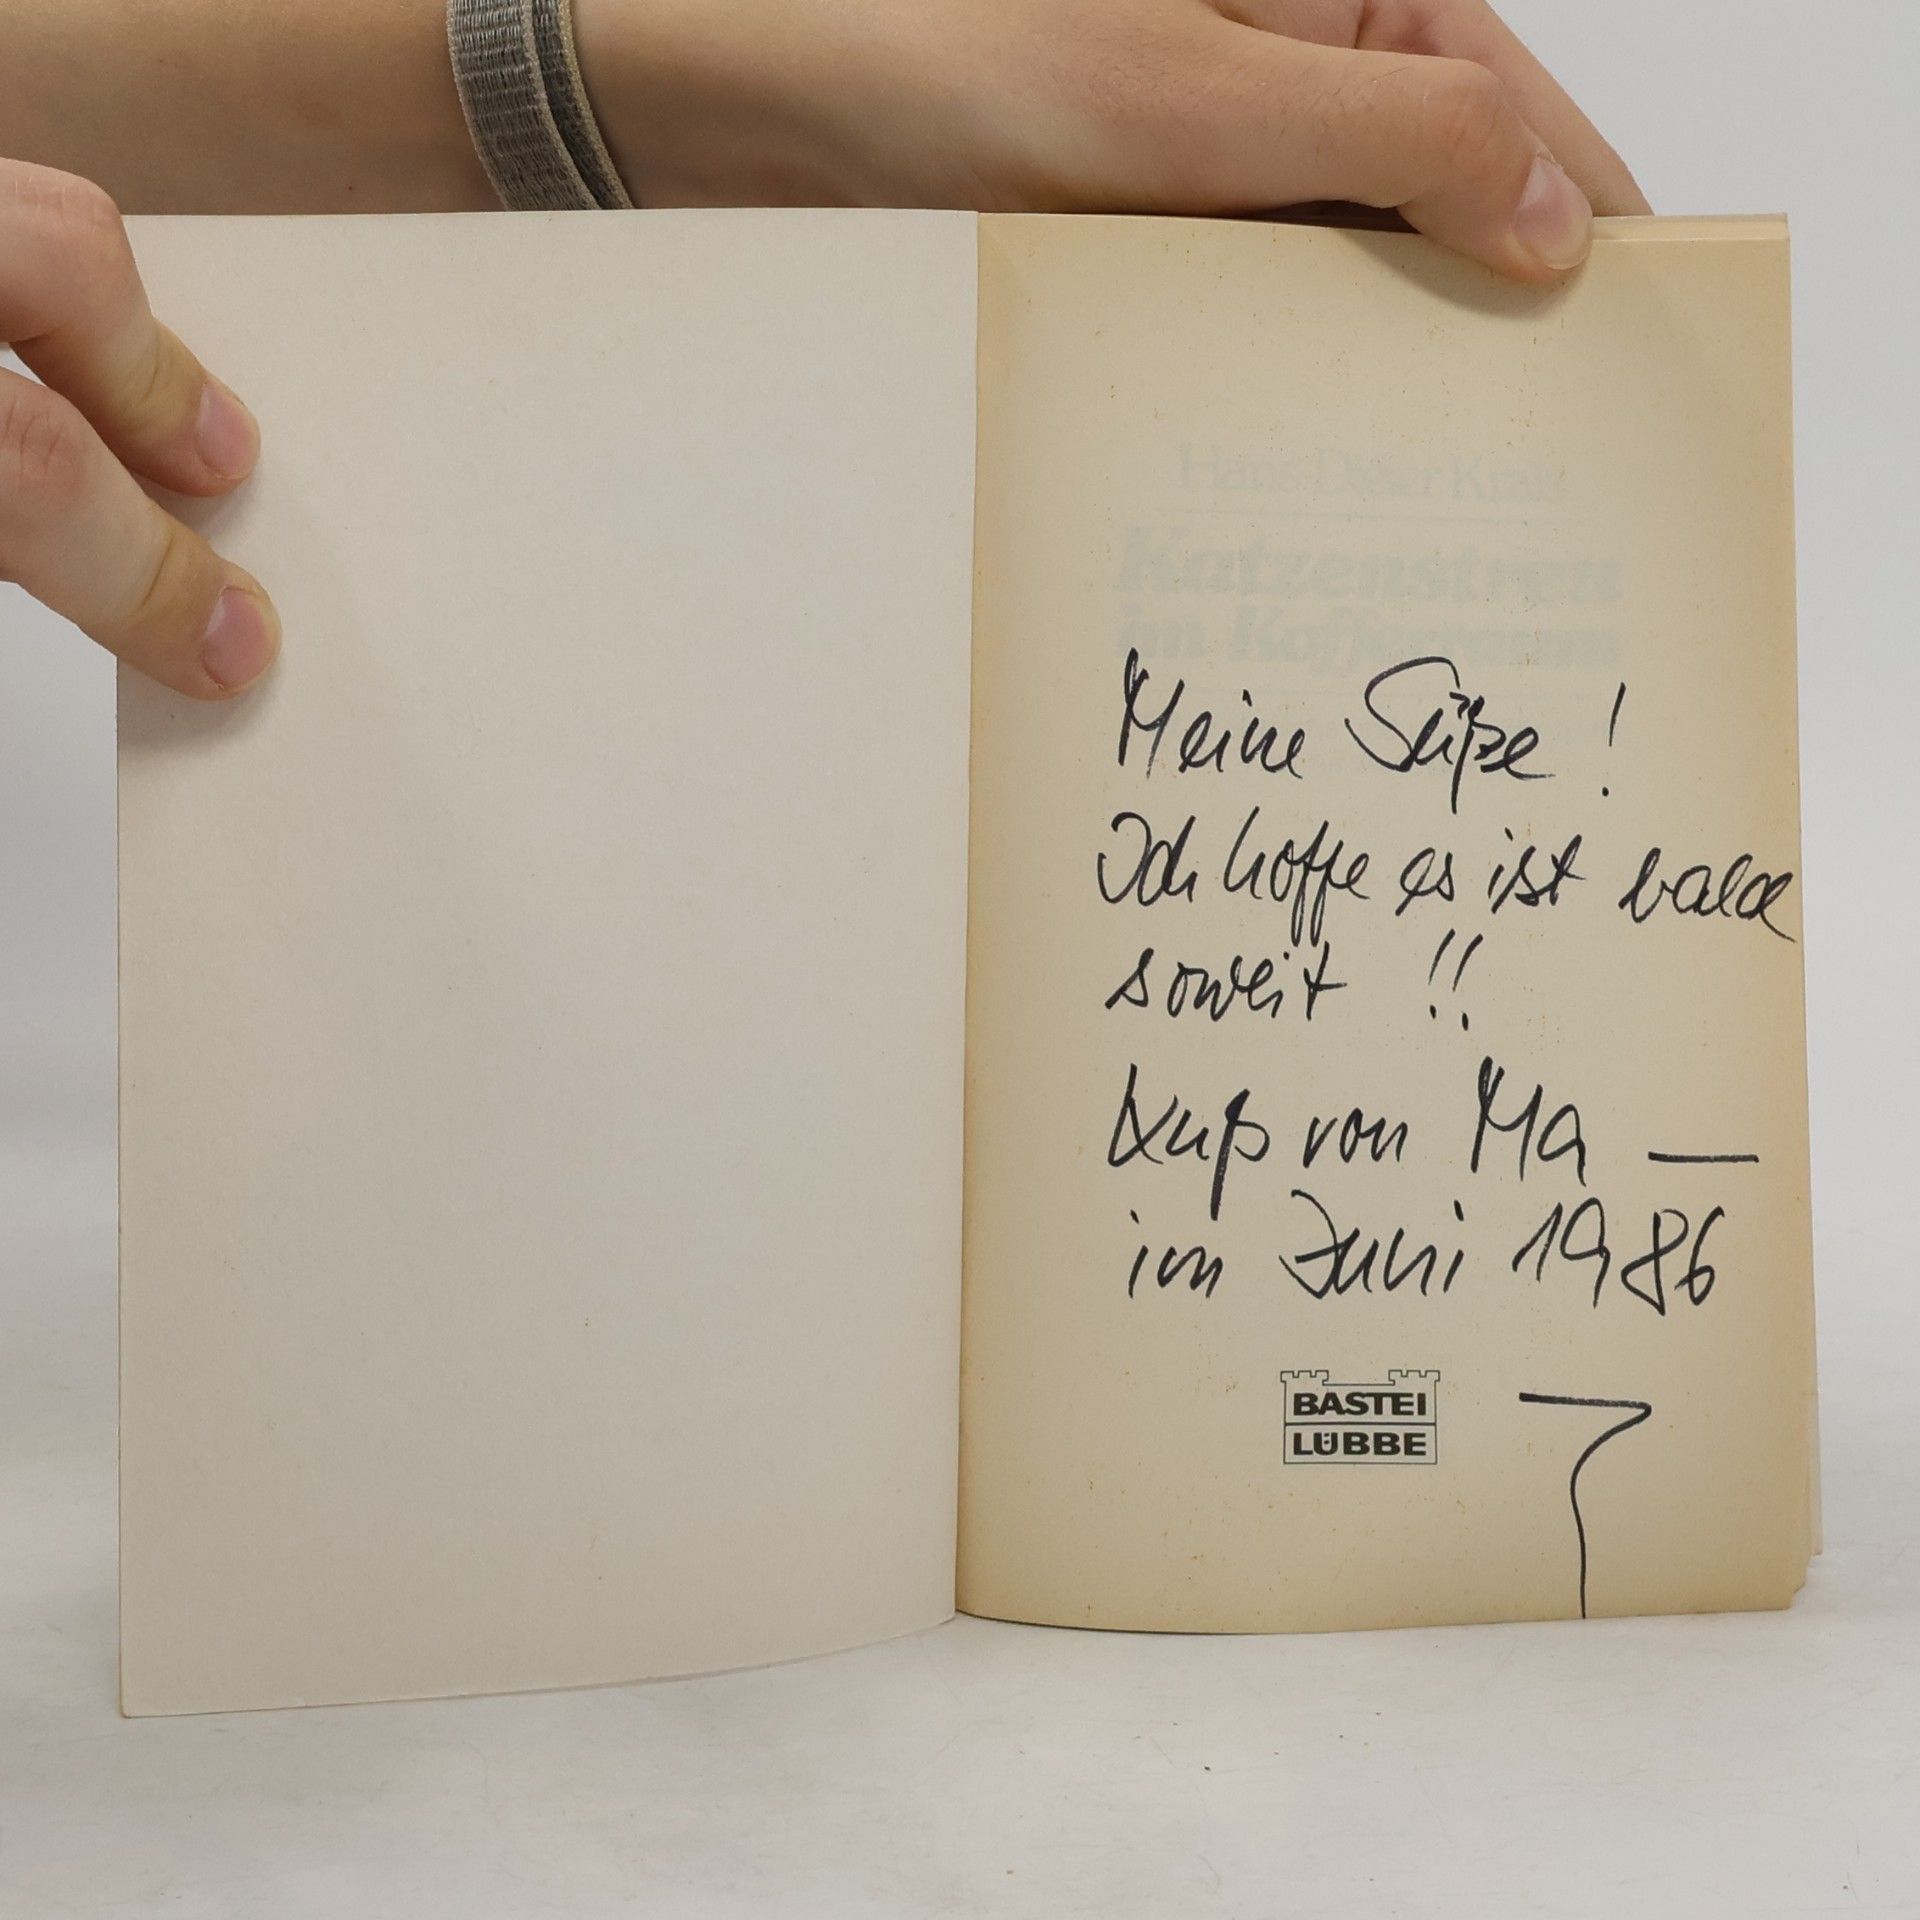 Hans Dieter
Katzenstreu
im Kofferraum
Meine Süße !
Ich hoffe es ist bald
soweit !!
Kuß von Ma —
im Juni 1986
BASTEI
LÜBBE